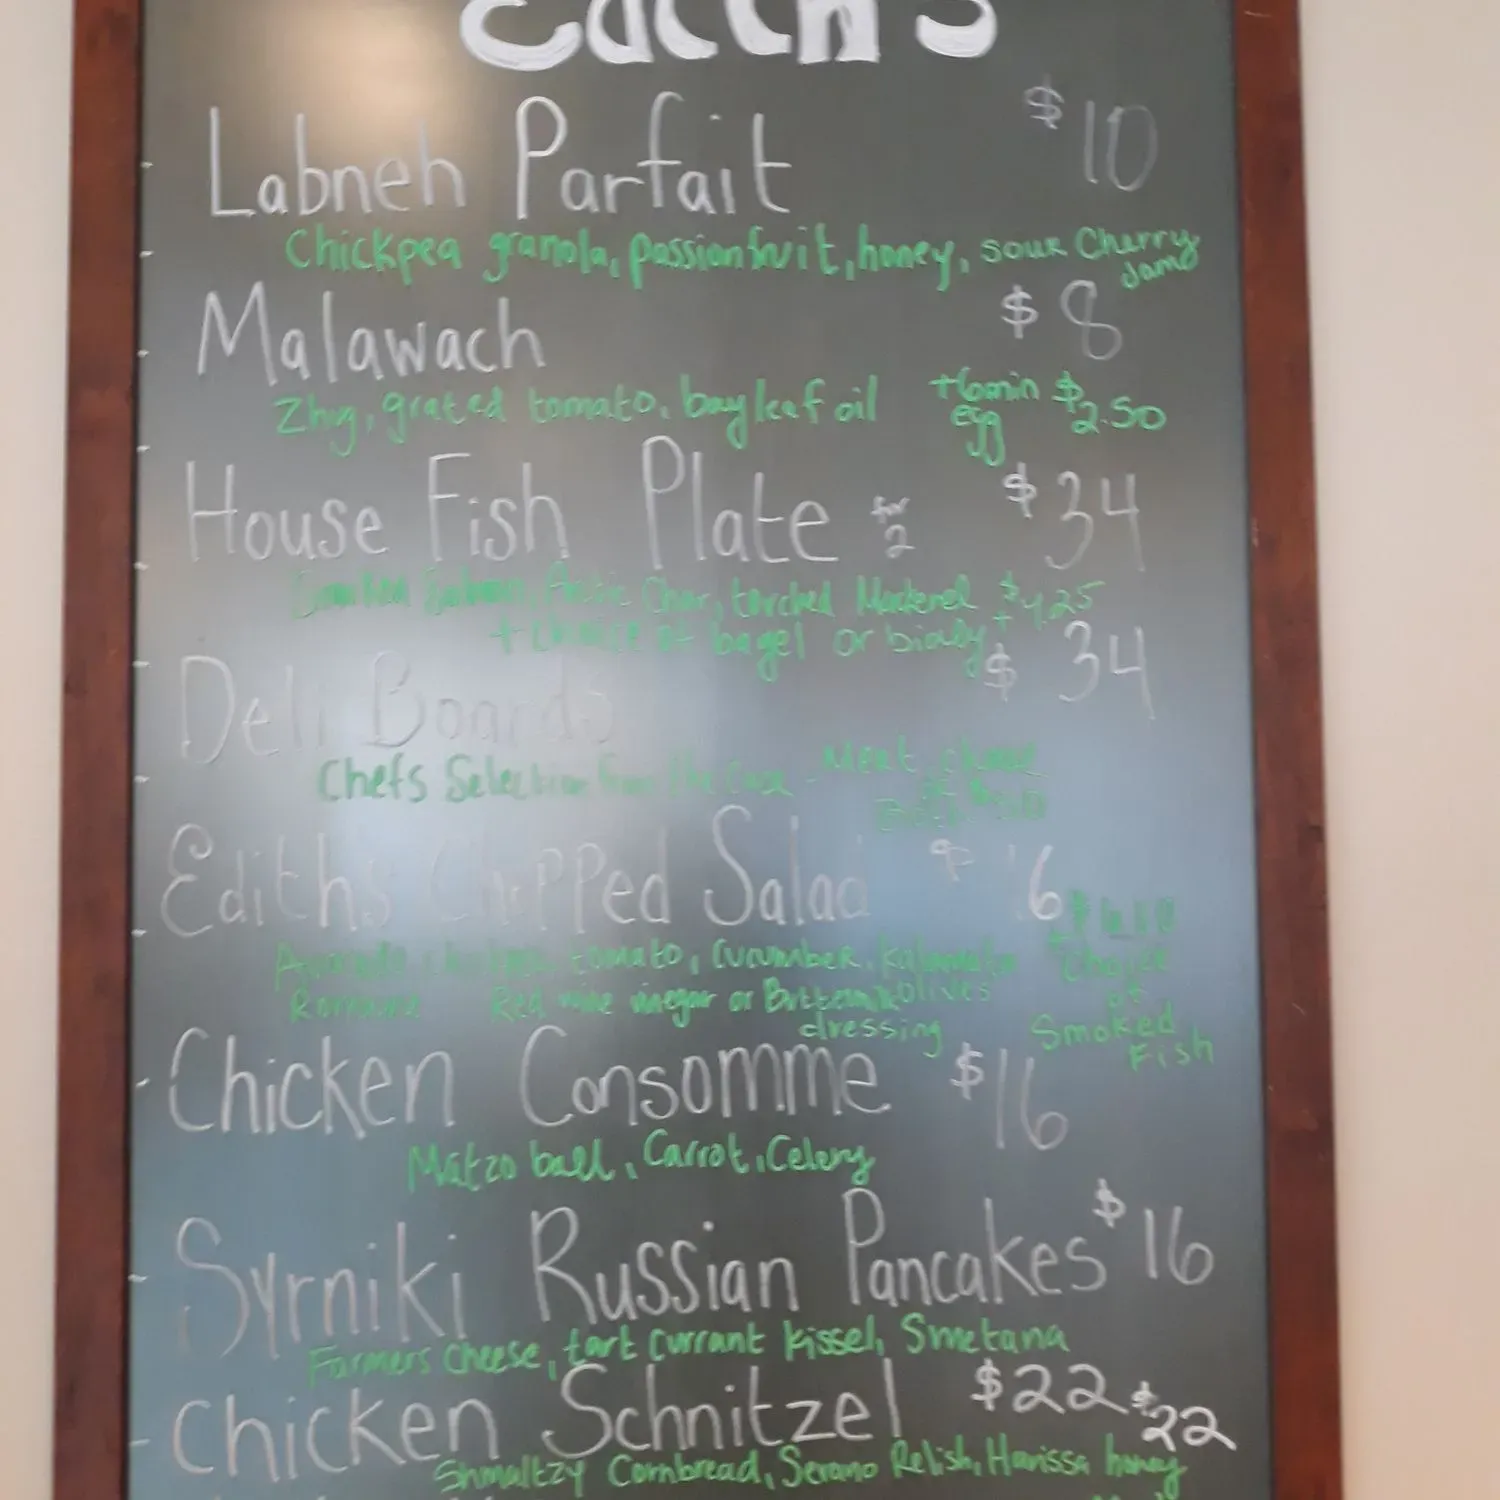 Edith's
Labneh Parfait $10
Chickpea granola, passionfruit, honey, sour Cherry
Jam
Malawach $8
Zhug, grated tomato, bay leaf oil +6min $2.50
egg
House Fish Plate for 2 $34
Salmon, Arctic Char, torched Mackerel $4.25
+ Choice of bagel or bialy +
Deli Boards $34
Chefs Selection from the Case Meat, cheese
or
Ediths Chopped Salad $16
Avocado, chickpea, tomato, Cucumber, Kalamata + Choice
Romaine Red wine vinegar or Buttermilk olives of
dressing Smoked
Fish
Chicken Consomme $16
Matzo ball, Carrot, Celery
Syrniki Russian Pancakes $16
Farmers cheese, tart currant kissel, Smetana
Chicken Schnitzel $22 $22
Shmaltzy Cornbread, Serrano Relish, Harissa honey